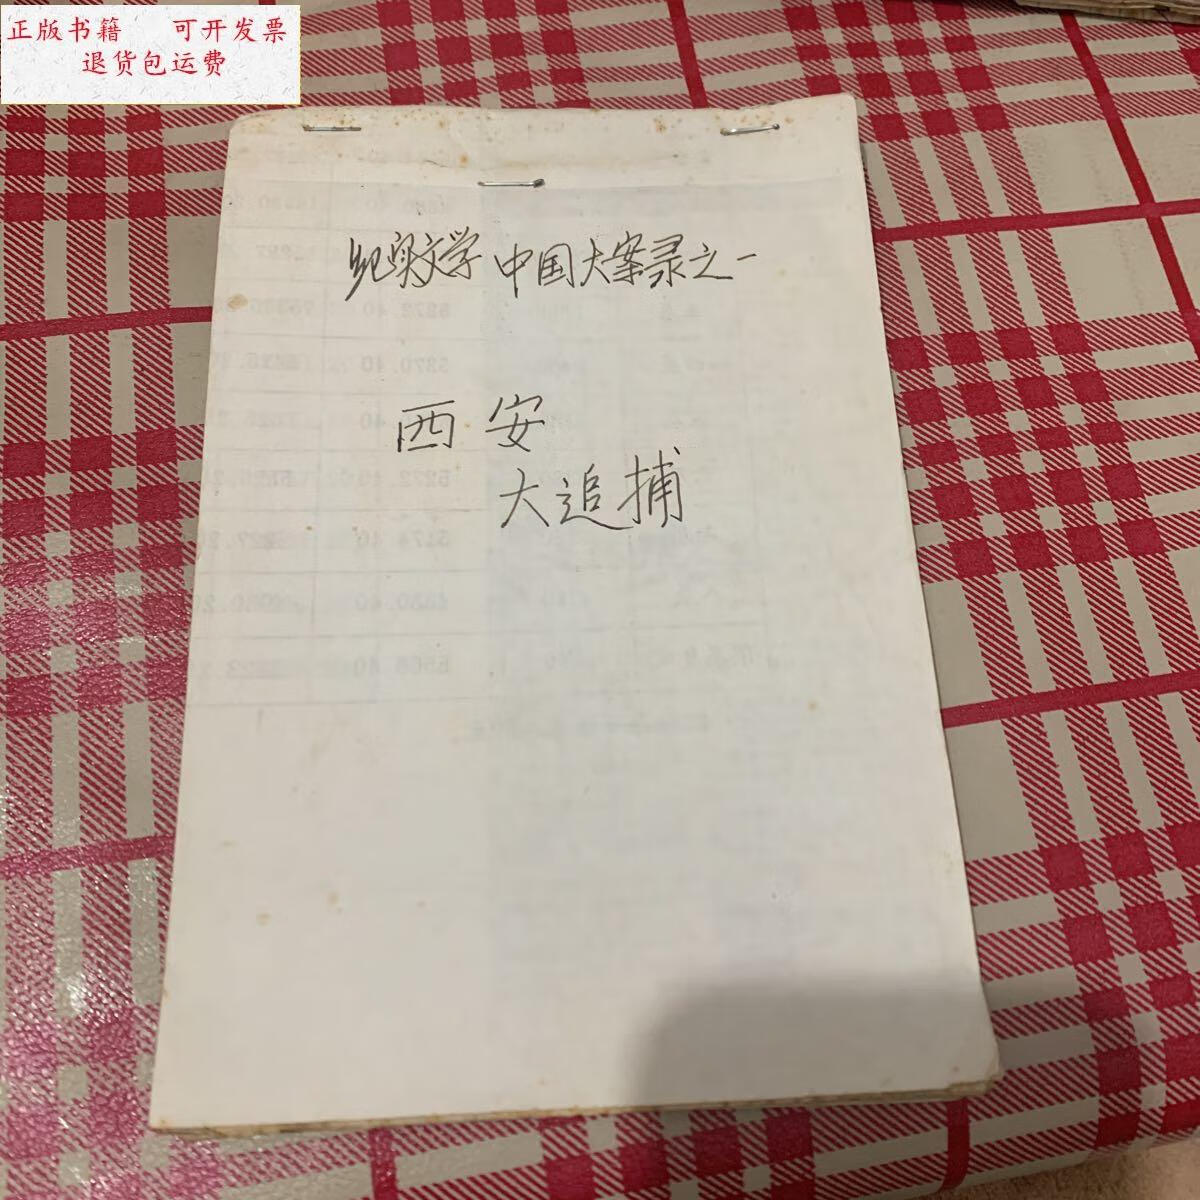 正版书籍 可开发票
退货包运费
纪实文学 中国大案录之一
西安
大追捕